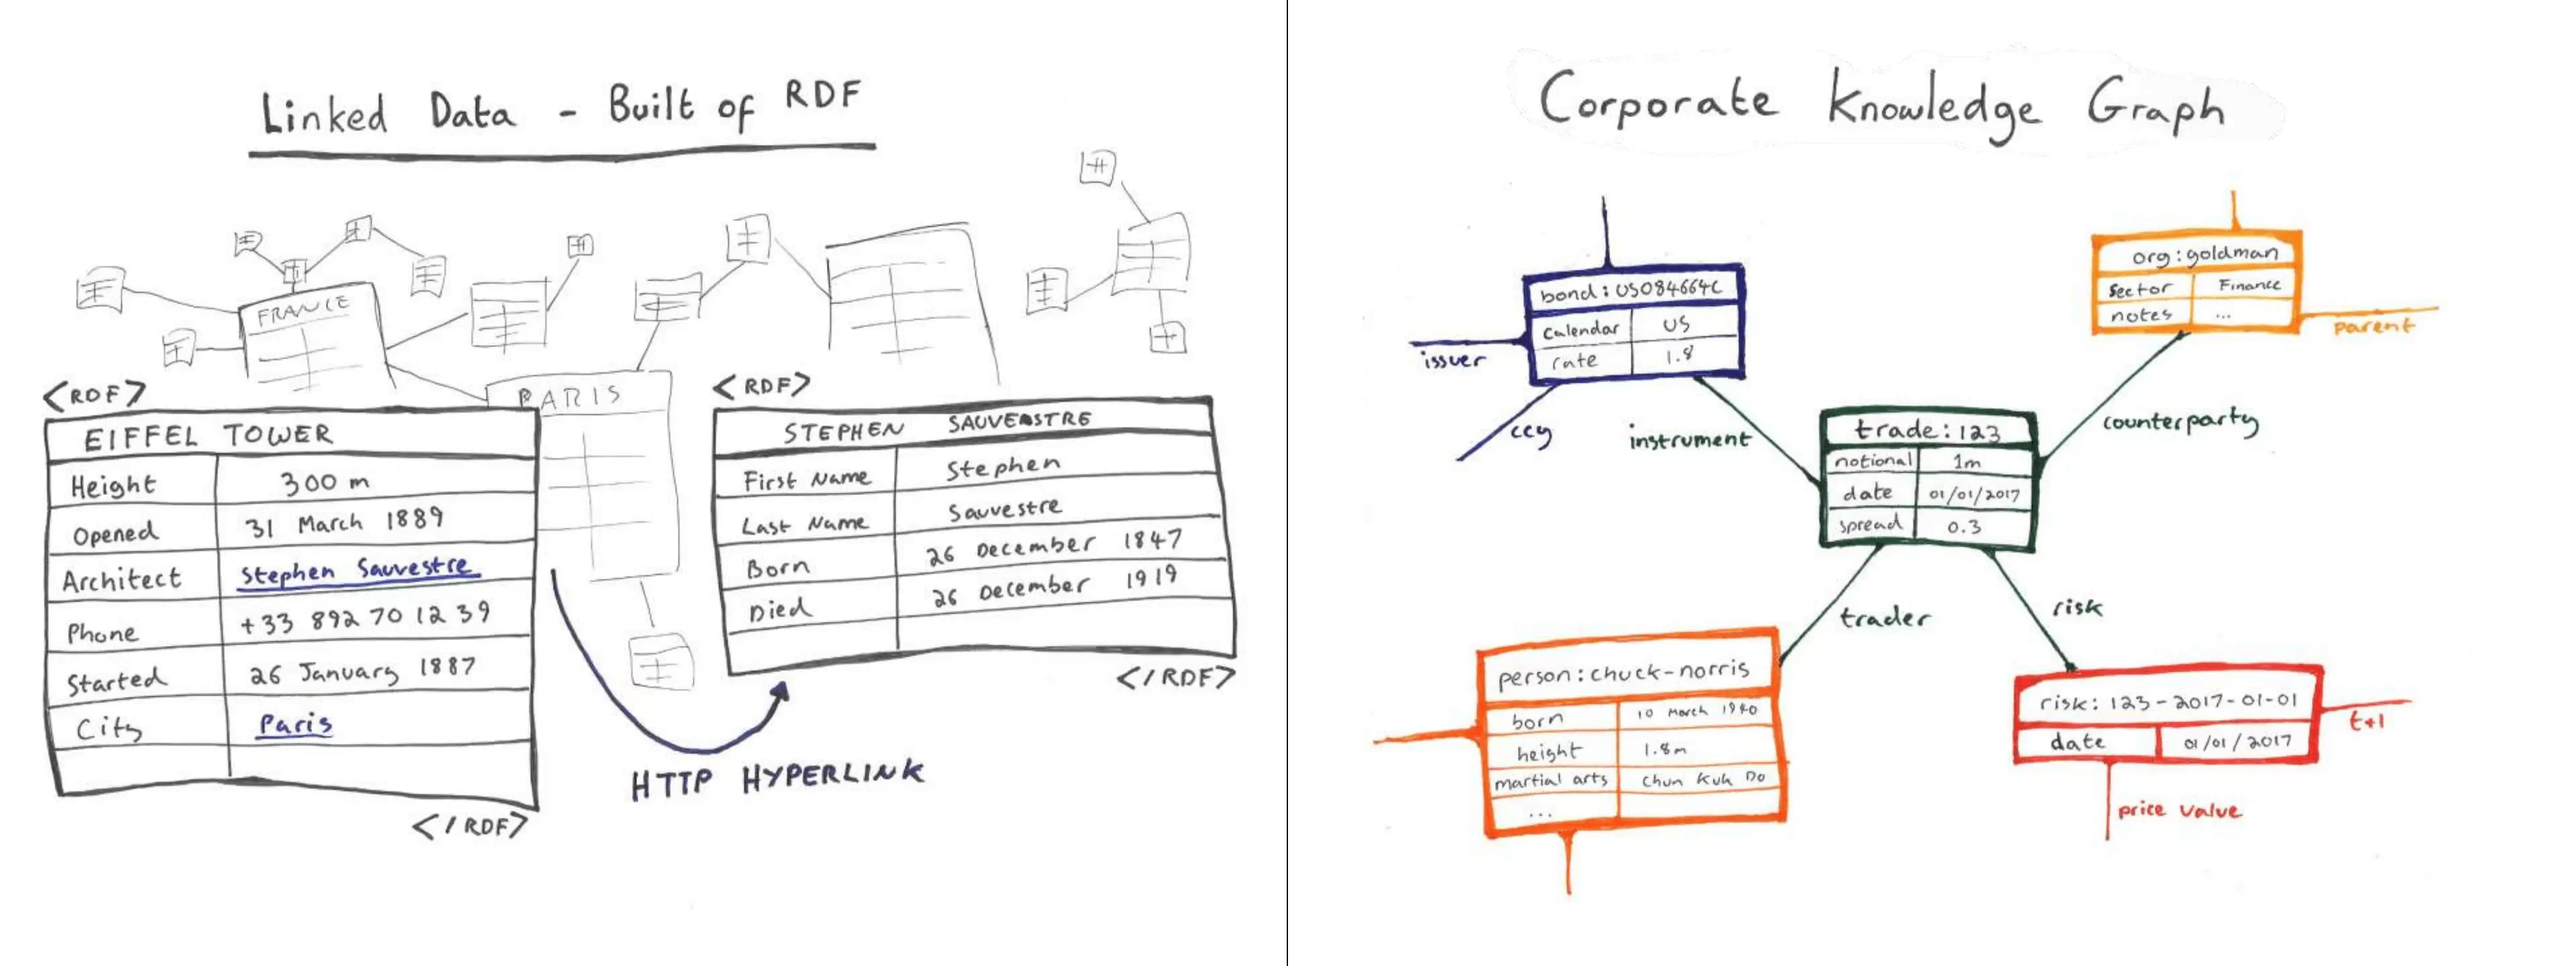 Linked Data - Built of RDF
FRANCE
PARIS
<RDF>
EIFFEL TOWER
Height 300 m
Opened 31 March 1889
Architect Stephen Sauvestre
Phone +33 892 70 12 39
Started 26 January 1887
City Paris
</RDF>
<RDF>
STEPHEN SAUVESTRE
First Name Stephen
Last Name Sauvestre
Born 26 December 1847
Died 26 December 1919
</RDF>
HTTP HYPERLINK
Corporate Knowledge Graph
bond: US084664C
calendar US
rate 1.8
issuer
ccy
instrument
org:goldman
Sector Finance
notes ...
parent
counterparty
trade:123
notional 1m
date 01/01/2017
spread 0.3
trader
risk
person:chuck-norris
born 10 March 1940
height 1.8m
martial arts Chun Kuk Do
...
risk: 123-2017-01-01
date 01/01/2017
t+1
price value